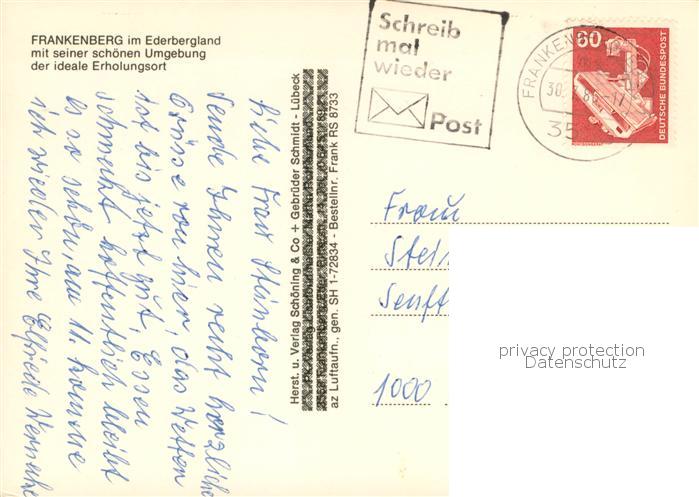 FRANKENBERG im Ederbergland
mit seiner schönen Umgebung
der ideale Erholungsort
Schreib
mal
wieder
Post
FRANKEN
30.
35
60
DEUTSCHE BUNDESPOST
Herst. u. Verlag Schöning & Co + Gebrüder Schmidt - Lübeck
az Luftaufn., gen. SH 1-72834 - Bestellnr. Frank RS 8733
liebe Frau Steinborn!
Sende Ihnen recht herzliche
Grüsse von hier, das Wetter
ist bis jetzt gut, Essen
schmeckt hoffentlich bleibt
es so schön, am 11. komme
ich wieder Ihre Elfriede
Frau
Stei
Senft
1000
privacy protection
Datenschutz